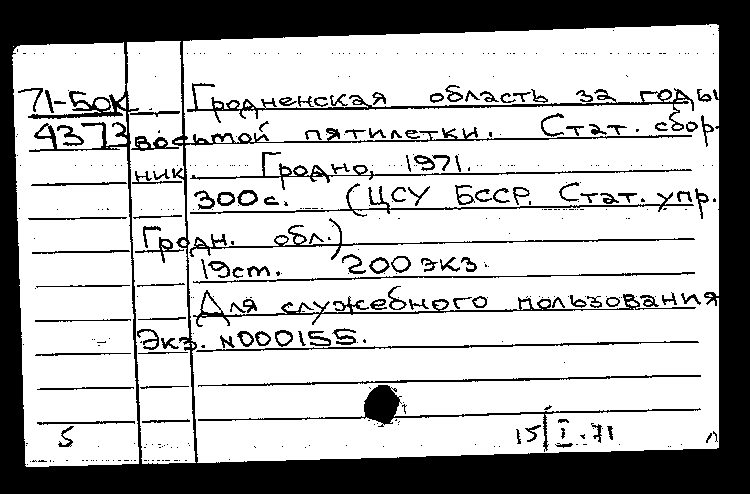 71-БОК Гродненская область за годы
4373 восьмой пятилетки. Стат. сбор-
ник. Гродно, 1971.
300с. (ЦСУ БССР. Стат. упр.
Гродн. обл.)
19см. 200 экз.
Для служебного пользования
Экз. №000155.
5 15/I.71